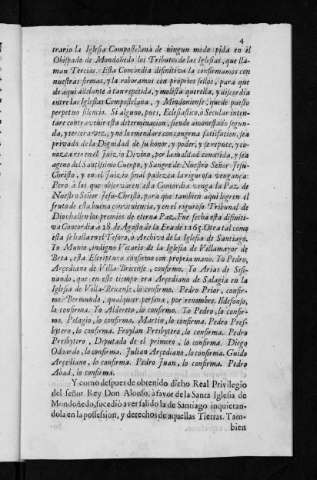 4
trario la Iglesia Compostelana de ningun modo pida en el
Obispado de Mondoñedo los Tributos de las Iglesias, que lla-
man Tercias. Esta Concordia difinitiva la confirmamos con
nuestras firmas, y la roboramos con proprios sellos, para que
de aqui adelante à tan repetida, y molesta querella, y discordia
entre las Iglesias Compostelana, y Mendunense, quede puesto
perpetuo silencio. Si alguno, pues, Eclesiastico, ò Secular inten-
tare contravenir esta determinacion, siendo amonestado segun-
da, y tercera vez, y no lo enmendare con congrua satisfacion, sea
privado de la Dignidad de su honor, y poder, y se repute, y co-
nozca reo en el Juizio Divino, por la maldad cometida, y sea
ageno del Santissimo Cuerpo, y Sangre de Nuestro Señor Jesu-
Christo, y en el Juizio final padezca la rigurosa vengança:
Pero à los que observaren esta Concordia venga la Paz de
Nuestro Señor Jesu-Christo, para que tambien aqui logren el
fruto de esta buena conveniencia, y en el riguroso Tribunal de
Dios hallen los premios de eterna Paz. Fue fecha esta difiniti-
va Concordia à 28. de Agosto de la Era de 1165. Otra tal como
esta se halla en el Tesoro, ò Archivo de la Iglesia de Santiago.
Yo Munio, indigno Vicario de la Iglesia de Villamayor de
Brea, esta Escriptura confirmo con propria mano. Yo Pedro,
Arçediano de Villa-Bruxense, confirmo. Yo Arias de Sis-
mundo, que en este tiempo era Arçediano de Salagia en la
Iglesia de Villa-Bruxense, lo confirmo. Pedro Prior, confir-
mo. Bermundo, qualquier persona, por renombre. Ildefonso,
la confirma. Yo Aldereto, lo confirmo. Yo Pedro, lo confir-
mo. Pelagio, lo confirma. Martin, lo confirma. Pedro Pres-
bytero, lo confirma. Froylan Presbytero, lo confirma. Pedro
Presbytero, Deputado de el primero, lo confirma. Diego
Odoardo, lo confirma. Julian Arçediano, lo confirma. Guido
Arçediano, lo confirma. Pedro Juan, lo confirma. Pedro
Abad, lo confirma.
Y como despues de obtenido dicho Real Privilegio
del señor Rey Don Alonso, à favor de la Santa Iglesia de
Mondoñedo, sucediò aver salido la de Santiago inquietan-
dola en la possession, y derechos de aquellas Tierras. Tam-
bien